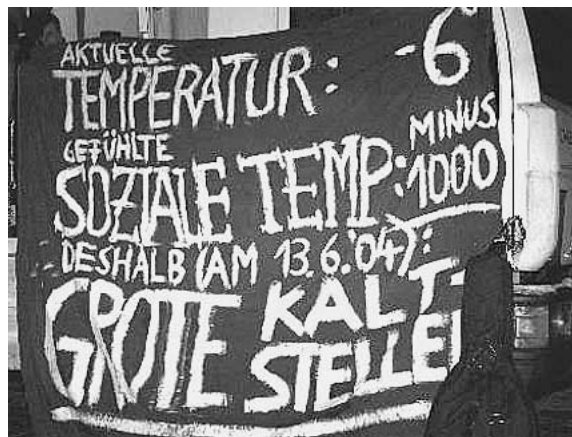 AKTUELLE
TEMPERATUR: -6
GEFÜHLTE
SOZIALE TEMP: MINUS 1000
DESHALB (AM 13.6.'04):
GROTE KALT-
STELLE